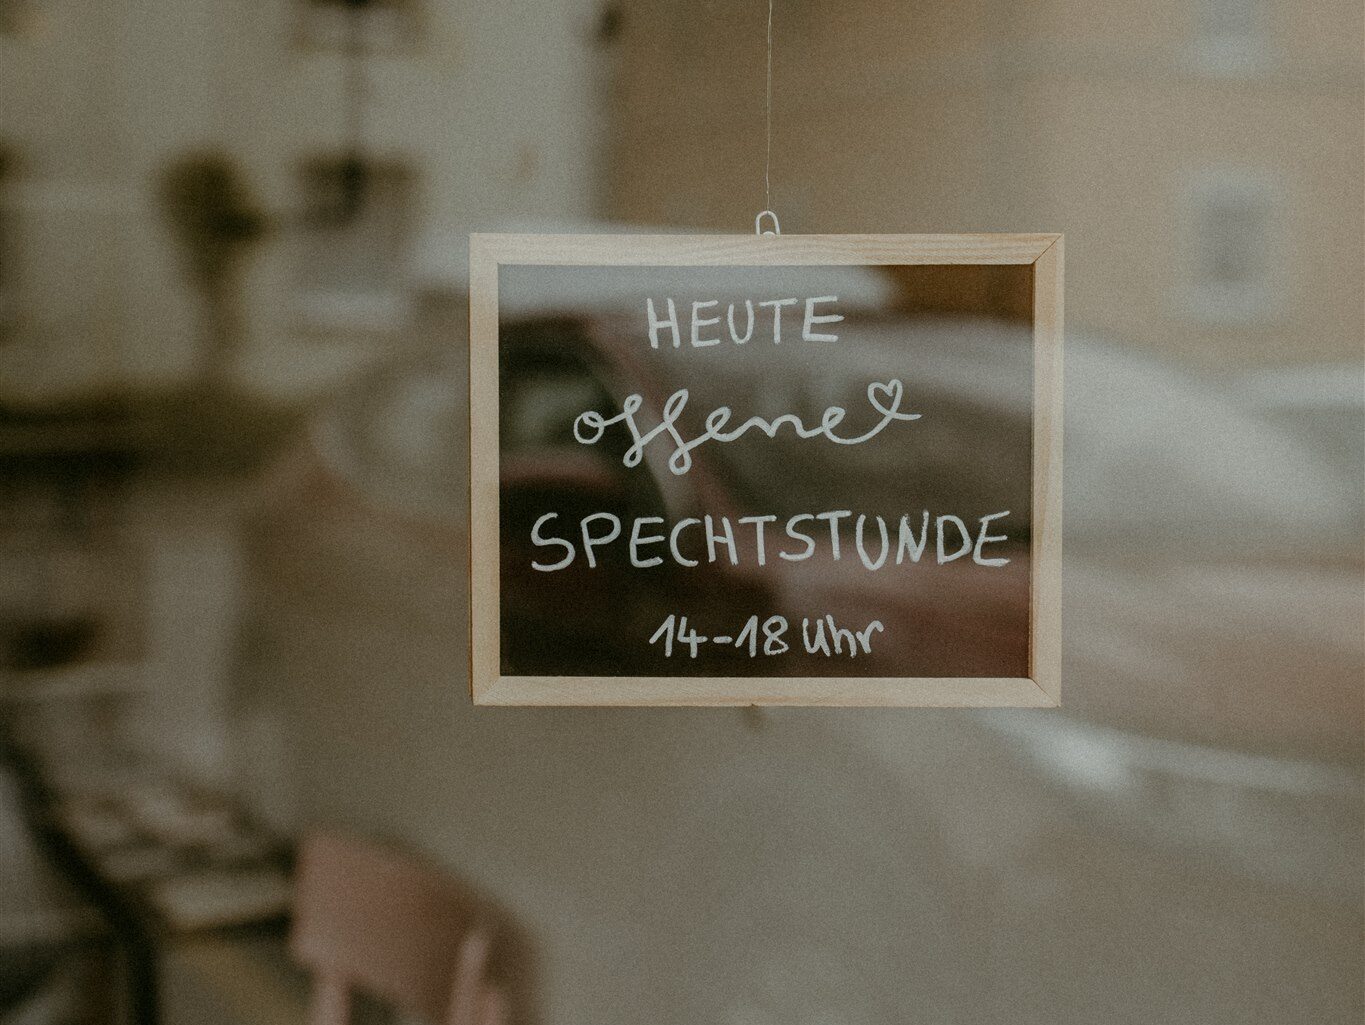 HEUTE
offene
SPECHTSTUNDE
14-18 Uhr